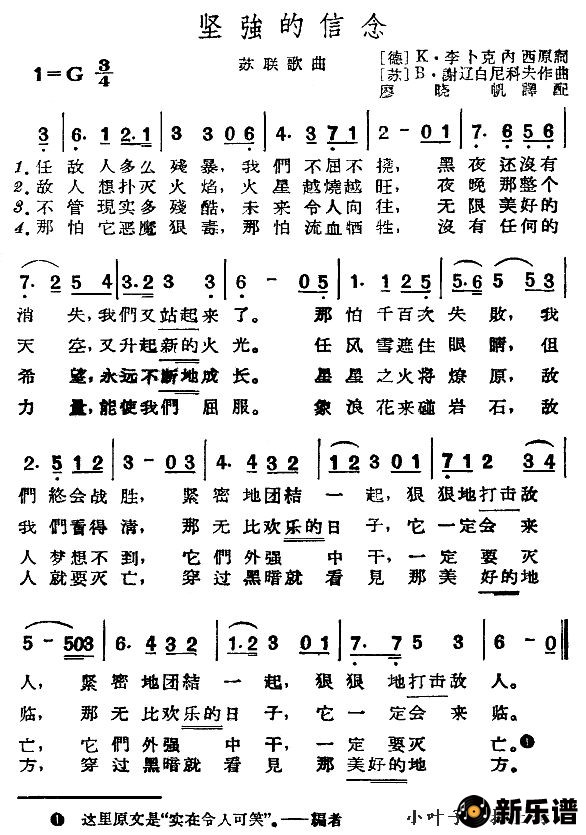 坚強的信念
1=G 3/4
苏联歌曲
[德]K·李卜克內西原詞
[苏]B·謝辽白尼科夫作曲
廖晓帆譯配
1. 任敌人多么残暴，我們不屈不挠，黑夜还沒有
2. 敌人想扑灭火焰，火星越燒越旺，夜晚那整个
3. 不管現实多殘酷，未来令人向往，无限美好的
4. 那怕它恶魔狠毒，那怕流血牺牲，沒有任何的
消失，我們又站起来了。那怕千百次失敗，我
天空，又升起新的火光。任风雪遮住眼睛，但
希望，永远不断地成长。星星之火将燎原，敌
力量，能使我們屈服。象浪花来碰岩石，敌
們終会战胜，紧密地团結一起，狠狠地打击敌
我們看得清，那无比欢乐的日子，它一定会来
人梦想不到，它們外强中干，一定要灭
人就要灭亡，穿过黑暗就看見那美好的地
人，紧密地团結一起，狠狠地打击敌人。
临，那无比欢乐的日子，它一定会来临。
亡，它們外强中干，一定要灭亡。❶
方，穿过黑暗就看見那美好的地方。
❶ 这里原文是“实在令人可笑”。——編者
小叶子
新乐谱